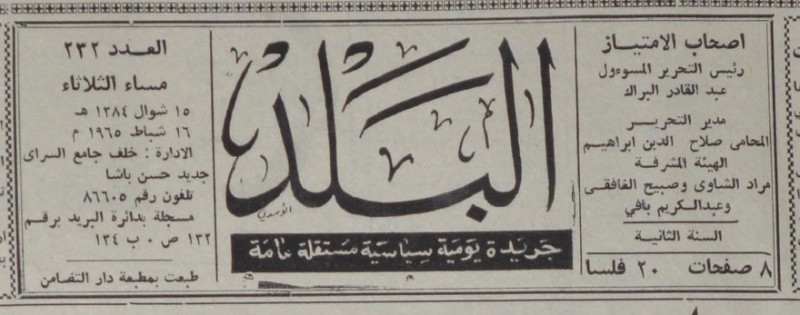 اصحاب الامتياز
رئيس التحرير المسوءول
عبد القادر البراك
مدير التحرير
المحامى صلاح الدين ابراهيم
الهيئة المشرفة
مراد الشاوى وصبيح الغافقى
وعبدالكريم بافي
السنة الثانية
٨ صفحات ٢٠ فلسا
البلد
جريدة يومية سياسية مستقلة عامة
العدد ٢٣٢
مساء الثلاثاء
١٥ شوال ١٣٨٤ هـ
١٦ شباط ١٩٦٥ م
الادارة : خلف جامع السراى
جديد حسن باشا
تلفون رقم ٨٦٦٠٥
مسجلة بدائرة البريد برقم
١٣٢ ص ٠ ب ١٣٤
طبعت بمطبعة دار التضامن